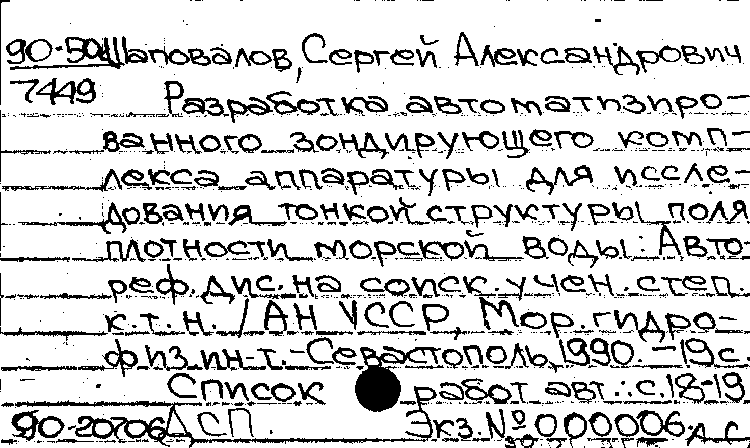 90-50 Шаповалов, Сергей Александрович
7449 Разработка автоматизиро-
ванного зондирующего комп-
лекса аппаратуры для иссле-
дования тонкой структуры поля
плотности морской воды: Авто-
реф. дис. на соиск. учен. степ.
к.т.н. / АН УССР, Мор. гидро-
физ. ин-т. - Севастополь, 1990. - 19 с.
Список работ авт.: с. 18-19
90-20706 ДСП. Экз. № 000006.